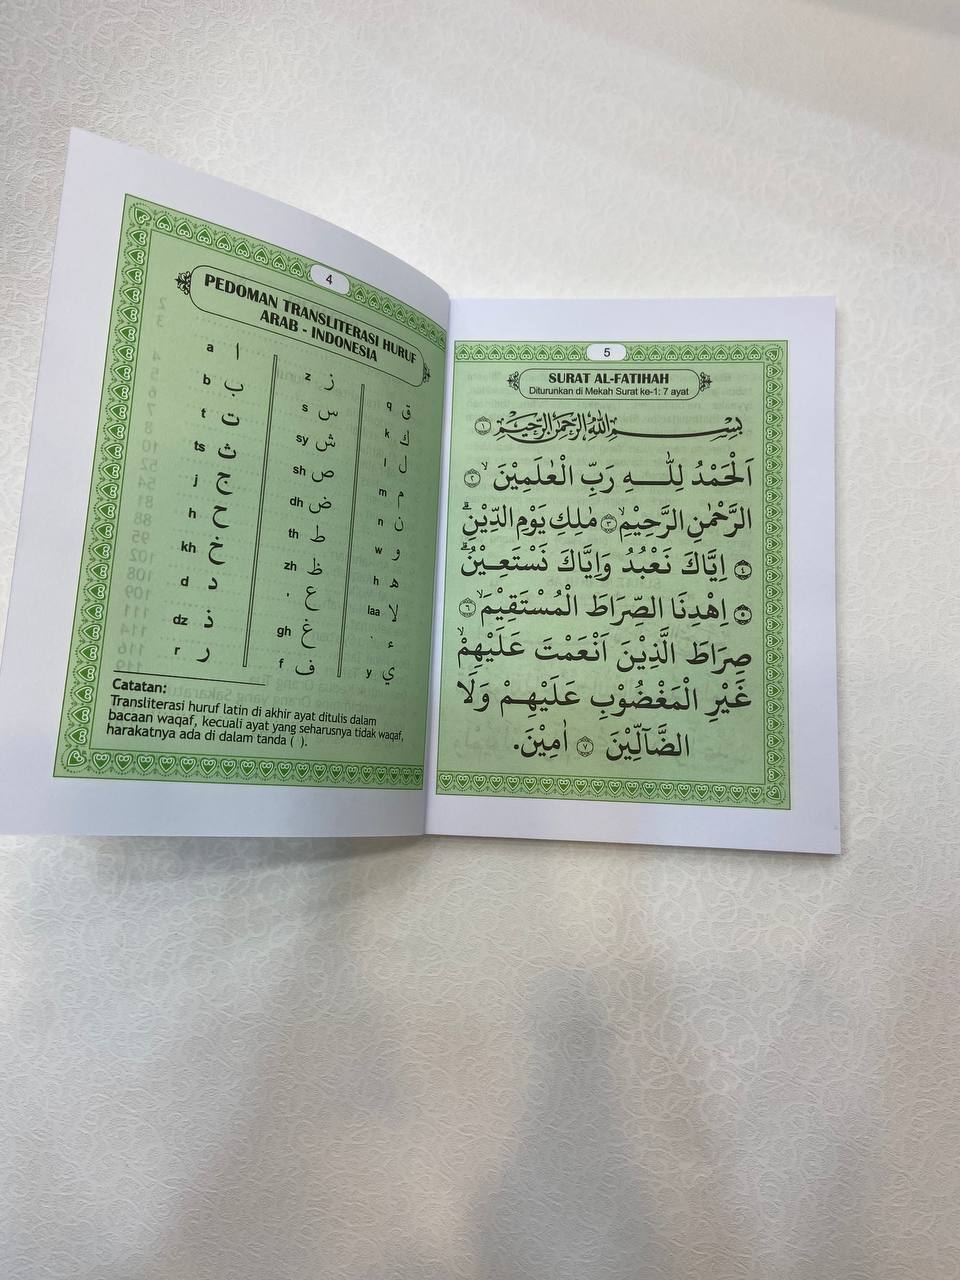 4
PEDOMAN TRANSLITERASI HURUF
ARAB - INDONESIA
a ا
b ب
t ت
ts ث
j ج
h ح
kh خ
d د
dz ذ
r ر
z ز
s س
sy ش
sh ص
dh ض
th ط
zh ظ
' ع
gh غ
f ف
q ق
k ك
l ل
m م
n ن
w و
h ه
laa لا
` ء
y ي
Catatan:
Transliterasi huruf latin di akhir ayat ditulis dalam
bacaan waqaf, kecuali ayat yang seharusnya tidak waqaf,
harakatnya ada di dalam tanda ( ).
5
SURAT AL-FATIHAH
Diturunkan di Mekah Surat ke-1: 7 ayat
بِسْمِ اللّٰهِ الرَّحْمٰنِ الرَّحِيْمِ ١
اَلْحَمْدُ لِلّٰهِ رَبِّ الْعٰلَمِيْنَۙ ٢
الرَّحْمٰنِ الرَّحِيْمِۙ ٣ مٰلِكِ يَوْمِ الدِّيْنِۗ
٤ اِيَّاكَ نَعْبُدُ وَاِيَّاكَ نَسْتَعِيْنُۗ
٥ اِهْدِنَا الصِّرَاطَ الْمُسْتَقِيْمَۙ ٦
صِرَاطَ الَّذِيْنَ اَنْعَمْتَ عَلَيْهِمْۙ
غَيْرِ الْمَغْضُوْبِ عَلَيْهِمْ وَلَا
الضَّاۤلِّيْنَ ٧ اٰمِيْنَ.